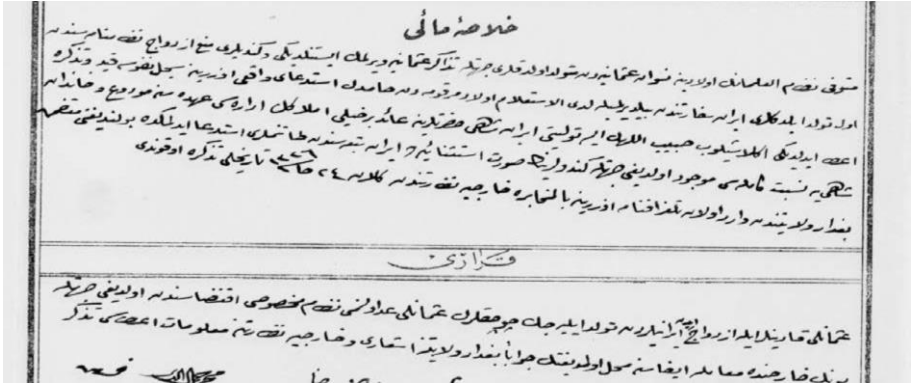 خلاصهٔ مائی
متوفی نظام العلمانك اولادینه نسوان عثمانیه‌دن تولد اولدقلری جهتله تذاكر عثمانیه ویرلمك ایستنلدیكی و كندیلری منع ازدواج نظامنامه‌سندن
اول تولد ایلدكلری ایران سفارتندن بیلدیرلمسیله لدی الاستعلام اولاد مرقومه‌دن حامدك استدعای واقعی اوزرینه سجل نفوسه قید و تذكره
اعطا ایدلدیكی اكلاشیلوب حبیب اللهك ایسه تولیتی ایران شاهی حضرتلرینه عائد برخیلی املاكك اداره‌سی عهده‌سنه مودوع و خاندان
شاهی‌یه نسبت موجود اولدیغی جهتله كندولرینك صورت استثنائیه‌ده ایران تبعه‌سندن طانتمسی استدعا ایدلمكده بولندیغنی متضمن
بغداد ولایتندن وارد اولان تلغرافنامه اوزرینه بالمخابره خارجیه نظارتندن كلان ٢٤ ١٣٢٦ تاریخلی تذكره اوقوندی
قراری
عثمانلی قادینلریله ازدواج ایدن ایرانیلردن تولد ایده‌جك چوجقلرك عثمانلی عد اولنمسی نظام مخصوصی اقتضاسندن اولدیغی جهتله
بونك خارجنده معامله ایفاسنه محل اولمدیغنك جوابا بغداد ولایتنه اشعاری و خارجیه نظارتنه معلومات اعطاسی تذكر